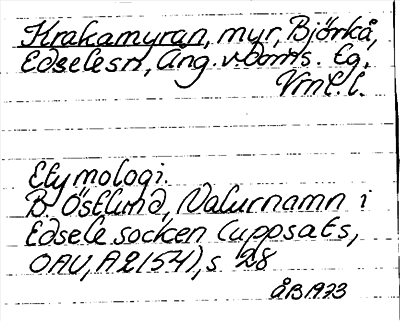 Krakamyran, myr, Björkå,
Edselesn, Ång. v. Domts. Lg.
Vrnl. l.
Etymologi.
B. Östlund, Naturnamn i
Edsele socken (uppsats,
OAU, A2154), s 28
ÅB 1973